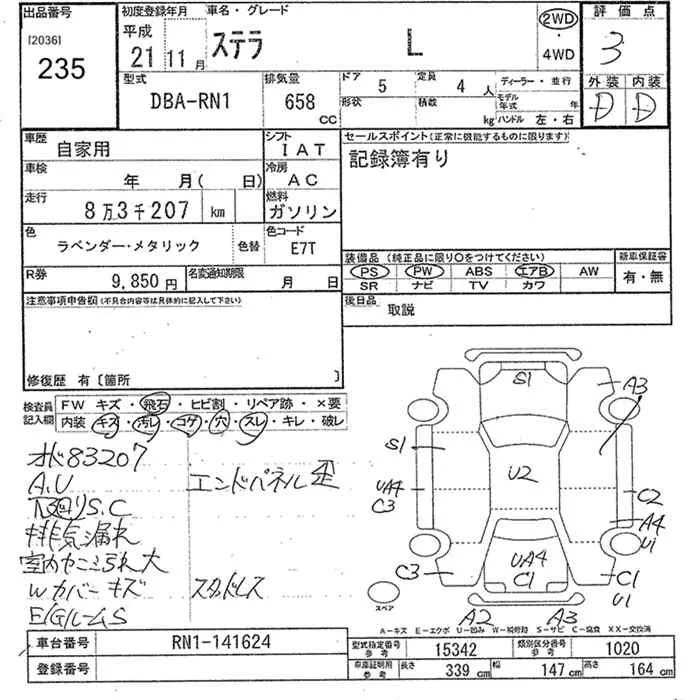 出品番号
[2036]
235
初度登録年月
平成
21 11月
車名・グレード
ステラ L
2WD
・
4WD
評価点
3
型式
DBA-RN1
排気量
658 CC
ドア 5
定員 4 人
形状
積載 kg
ディーラー・並行
モデル年式 年
ハンドル 左・右
外装 内装
D D
車歴
自家用
シフト
IAT
セールスポイント(正常に機能するものに限ります)
記録簿有り
車検
年 月( 日)
冷房
AC
走行
8万3千207 km
燃料
ガソリン
色
ラベンダー・メタリック
色替
色コード
E7T
装備品(純正品に限り〇をつけてください)
PS PW ABS エアB AW
SR ナビ TV カワ
新車保証書
有・無
R券
9,850円
名変通知期限
月 日
後日品
取説
注意事項申告欄(不具合内容等は具体的に記入して下さい)
修復歴 有〔箇所 〕
検査員記入欄
FW キズ・飛石・ヒビ割・リペア跡・×要
内装 キズ・汚レ・コゲ・穴・スレ・キレ・破レ
オド83207
A.U
下回りS.C
排気漏れ
室内ヤニ汚れ大
Wカバーキズ
E/GルームS
エンドパネル歪
スタッドレス
S1
A3
S1
U2
UA4
C3
C2
A4
U1
C3
UA4
C1
C1
U1
A2
A3
スペア
A-キズ E-エクボ U-凹み W-補修跡 S-サビ C-腐食 XX-交換済
車台番号
RN1-141624
登録番号
型式指定番号
参考
15342
類別区分番号
参考
1020
車庫証明用
参考
長さ 339 cm
幅 147 cm
高さ 164 cm